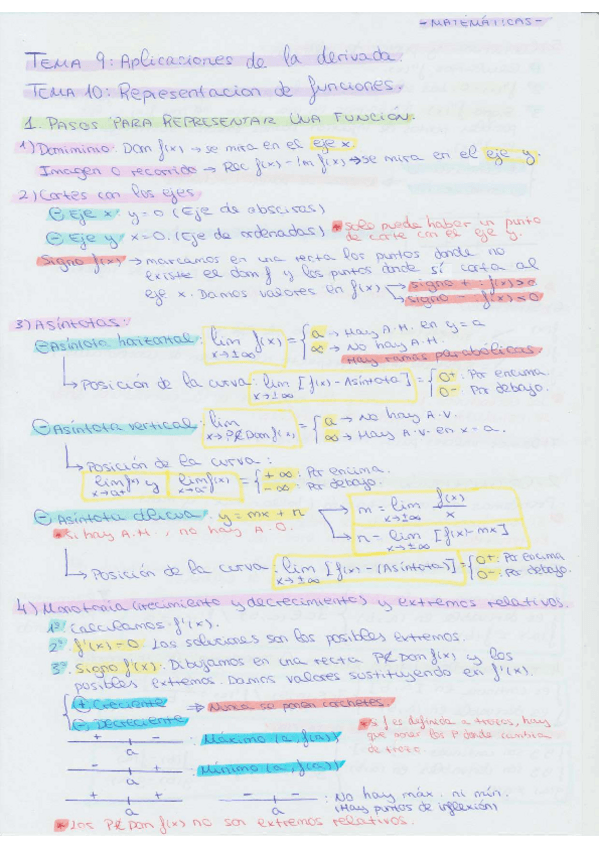 - MATEMÁTICAS -
TEMA 9: Aplicaciones de la derivada.
TEMA 10: Representacion de funciones.
1. PASOS PARA REPRESENTAR UNA FUNCIÓN.
1) Domiminio: Dom f(x) → se mira en el eje x.
Imagen o recorrido → Rec f(x) - Im f(x) → se mira en el eje y.
2) Cortes con los ejes
- Eje x: y=0 (Eje de abscisas)
- Eje y: x=0. (Eje de ordenadas) * solo puede haber un punto
de corte con el eje y.
Signo f(x) → marcamos en una recta los puntos donde no
existe el dom f y los puntos donde sí corta al
eje x. Damos valores en f(x) → signo + : f(x)>0
→ signo - : f(x)<0
3) Asíntotas:
- Asíntota horizontal: lim x→±∞ f(x) = { a → Hay A.H. en y=a
∞ → No hay A.H.
Hay ramas parabólicas
→ Posición de la curva: lim x→±∞ [f(x) - Asíntota] = { 0+: Por encima.
0-: Por debajo.
- Asíntota vertical: lim x→P∉Dom f(x) = { a → No hay A.V.
∞ → Hay A.V. en x=a.
→ Posición de la curva:
lim x→a+ f(x) y lim x→a- f(x) = { +∞: Por encima.
-∞: Por debajo.
- Asíntota oblicua: y=mx+n → m = lim x→±∞ f(x)/x
* Si hay A.H., no hay A.O. → n = lim x→±∞ [f(x)-mx]
→ Posición de la curva: lim x→±∞ [f(x) - (Asíntota)] = { 0+: Por encima
0-: Por debajo.
4) Monotonía (crecimiento y decrecimiento) y extremos relativos.
1º Calculamos f'(x).
2º f'(x)=0. Las soluciones son los posibles extremos.
3º Signo f'(x): Dibujamos en una recta P∉Dom f(x) y los
posibles extremos. Damos valores sustituyendo en f'(x).
+ Creciente → Nunca se ponen corchetes.
- Decreciente
* Si f es definida a trozos, hay
que poner los P donde cambia
de trozo.
+ - a : Máximo (a, f(a))
- + a : Mínimo (a, f(a))
+ + a - - a : No hay máx. ni mín.
(Hay puntos de inflexión)
* Los P∉Dom f(x) no son extremos relativos.